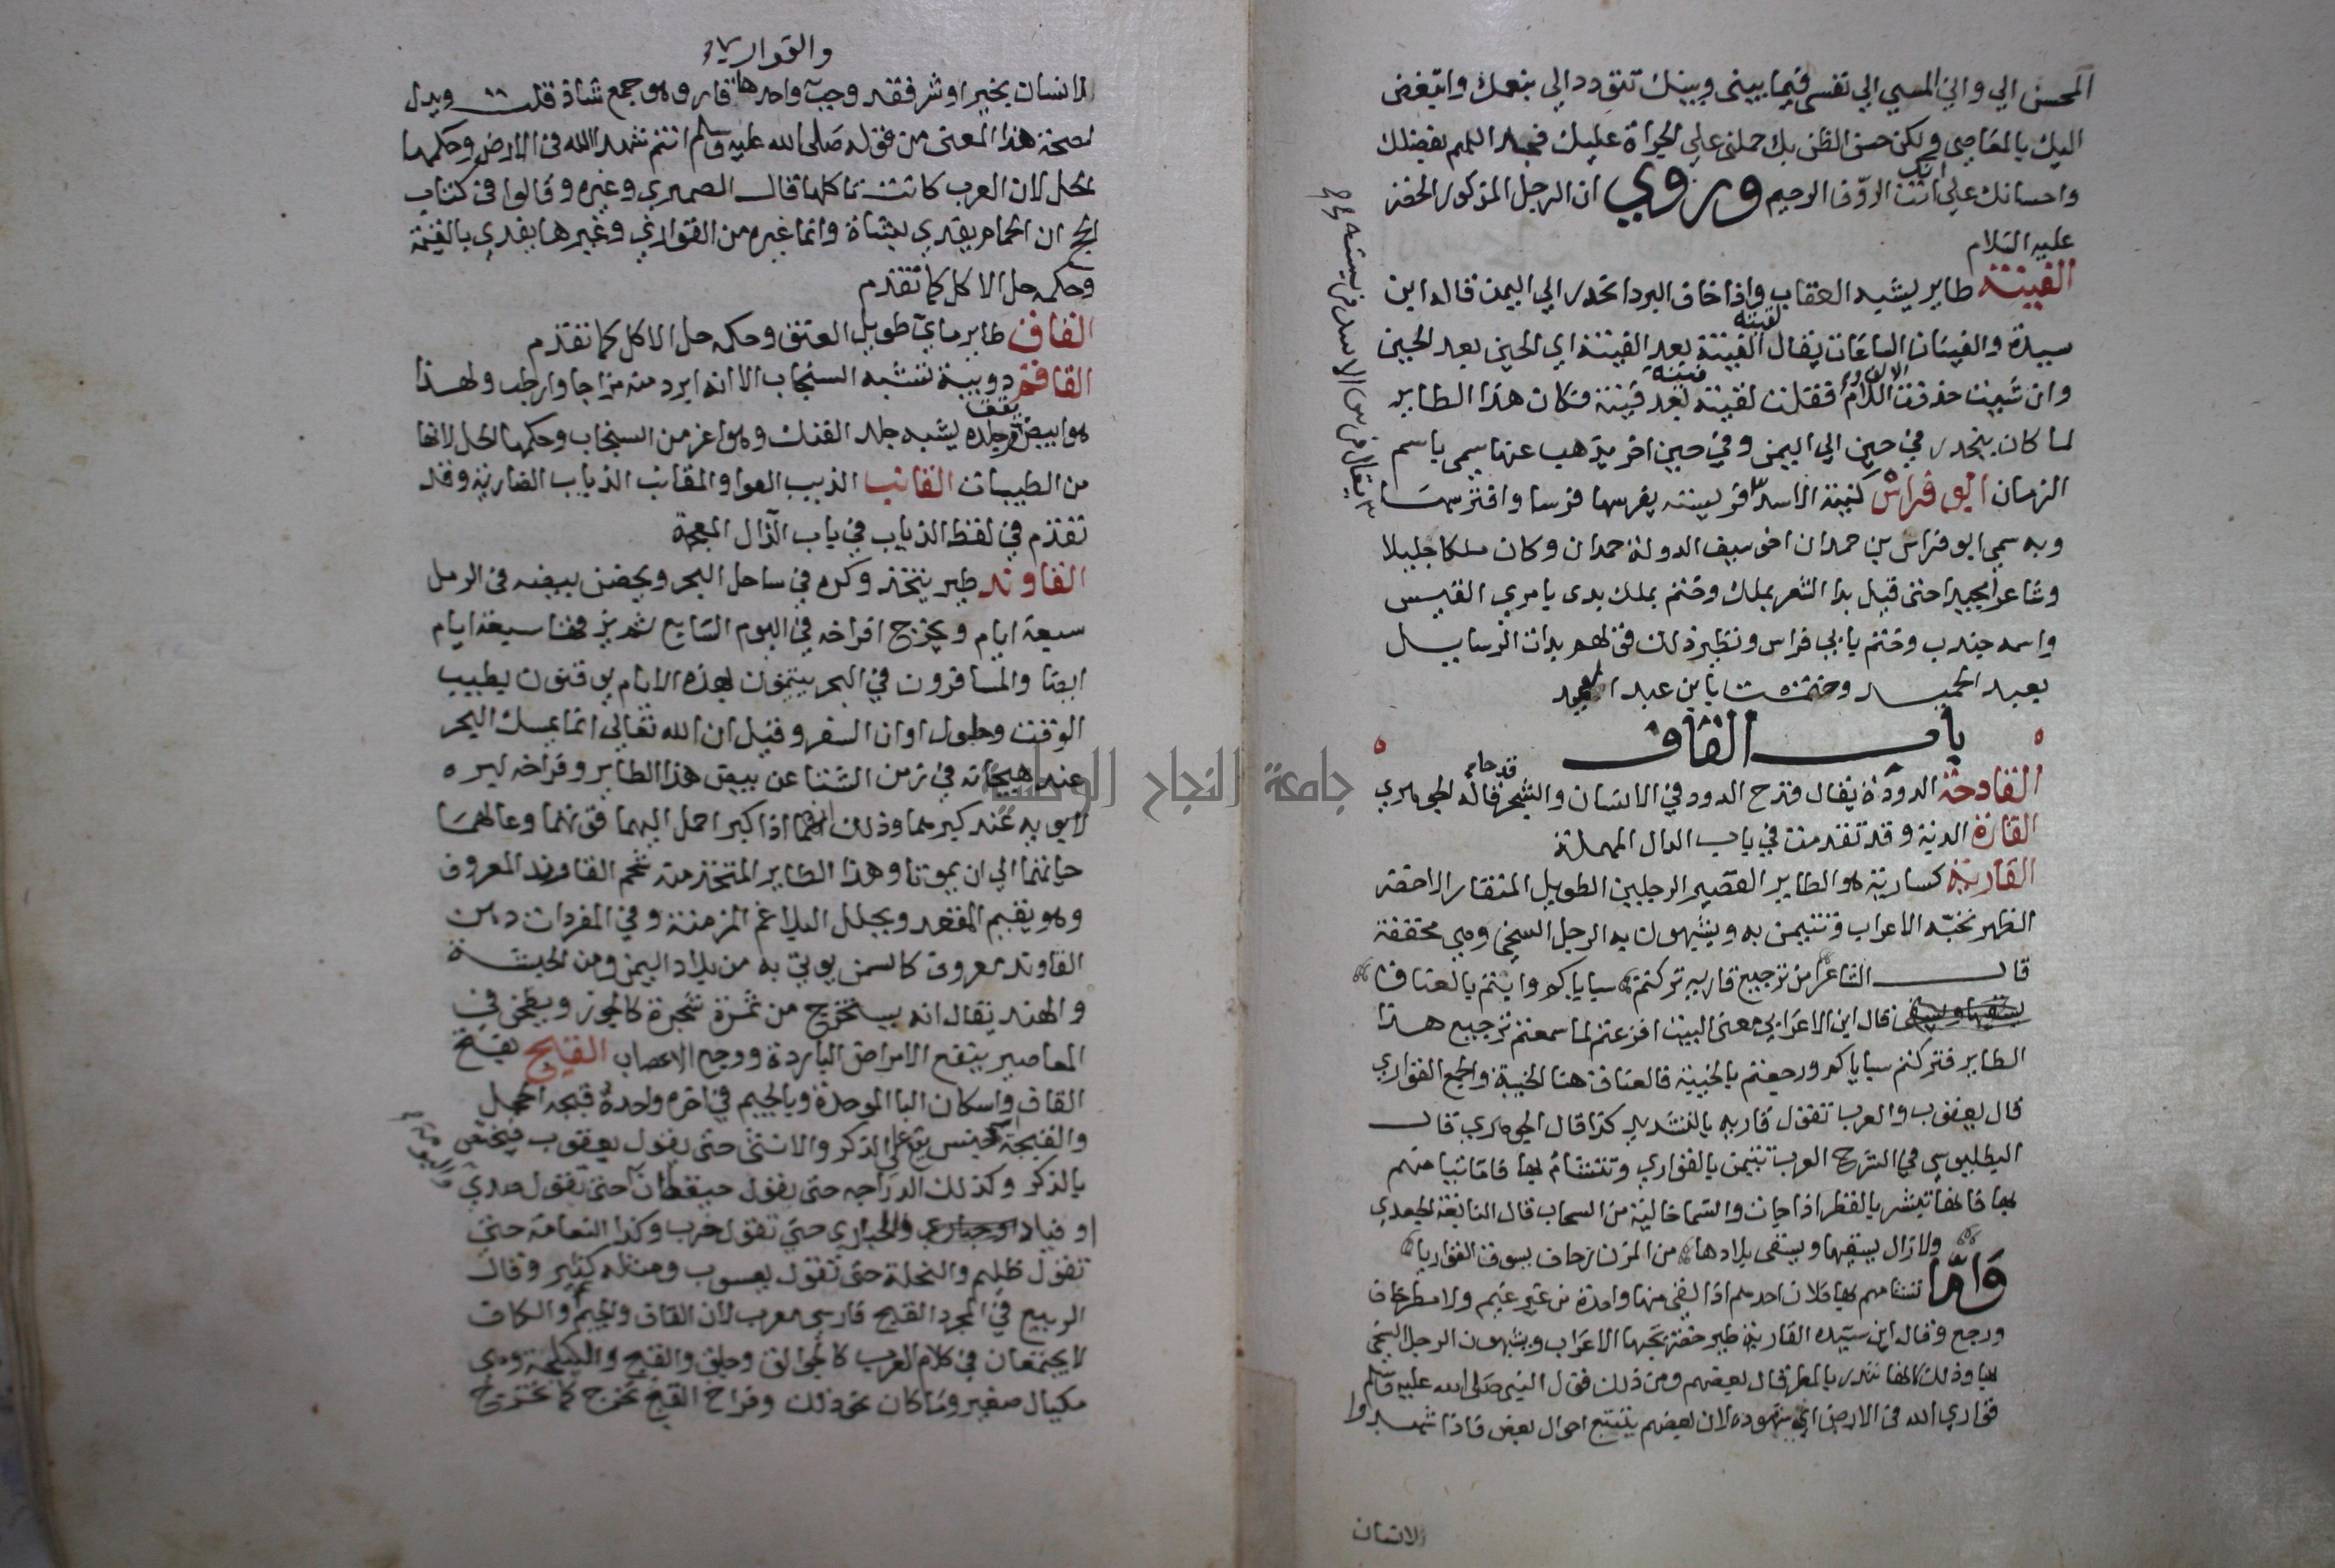 المحسن الي واني المسي الي نفسي فيما بيني وبينك تتودد الي بنعمك واتبغض
اليك بالمعاصي ولكن حسن الظن بك حملني علي الجراة عليك فجد اللهم بفضلك
واحسانك علي انك انت الروف الرحيم وروي ان الرجل المذكور الخضر
عليه السلام
الفينة طاير يشبه العقاب واذا خاف البرد انحدر الي اليمن قاله ابن
سيدة والفينات الساعات يقال لقيته الفينة بعد الفينة اي الحين بعد الحين
وان شيت حذفت الالف واللام فقلت لقيته فينة بعد فينة فكان هذا الطاير
لما كان ينحدر في حين الي اليمن وفي حين اخر يذهب عنها سمي باسم
الزمان ابو فراس كنية الاسد فريسته يفرسها فرسا وافترسها
وبه سمي ابو فراس بن حمدان اخو سيف الدولة حمدان وكان ملكا جليلا
وشاعرا مجيدا حتى قيل بدا الشعر بملك وختم بملك بدى بامري القيس
واسمه جندب وختم بابي فراس ونظير ذلك قولهم بدات الرسايل
بعبد الحميد وختمت بابن عبد
باب القاف
القادحة الدودة يقال قدح الدود في الاسنان والشجر قاله الجوهري
القارة الدبة وقد تقدمت في باب الدال المهملة
القارية كسارية هو الطاير القصير الرجلين الطويل المنقار الاخضر
الظهر تحبه الاعراب وتتيمن به ويشبهون به الرجل السخي وهي مخففة
قال الشاعر امن ترجيع قارية تركتم سباياكم وابتم بالعناق
قال ابن الاعرابي معنى البيت افزعتم لما سمعتم ترجيع هذا
الطاير فتركتم سباياكم ورجعتم بالخيبة فالعناق هنا الخيبة والجمع القواري
قال يعقوب والعرب تقول قاريه بالتشديد كذا قال الجوهري قال
البطليوسي في الشرح العرب تتيمن بالقواري وتتشام بها فاما تيامنهم
بها فانها تبشر بالقطر اذا جات والسما خالية من السحاب قال النابغة الجعدي
ولازال يسقيها ويسقى بلادها من المزن زحاف يسوق القواريا
واما تشامهم بها فلان احدهم اذا لقي منها واحدة من غير غيم ولا مطر خاف
ورجع وقال ابن سيده القارية طير خضر تحبها الاعراب ويشبهون الرجل السخي
بها وذلك انها تنذر بالمطر قال بعضهم ومن ذلك قول النبي صلى الله عليه وسلم
قواري الله في الارض اي شهوده لان بعضهم يتتبع احوال بعض فاذا شهدوا
الانسان
يقال فرس الاسد فريسته
والقوار
لانسان بخير او شر فقد وجب واحدها قار وهو جمع شاذ قلت ويدل
لصحة هذا المعنى من قوله صلى الله عليه وسلم انتم شهدا الله في الارض وحكمها
لحل لان العرب كانت تاكلها قال الصيمري وغيره وقالوا في كتاب
الحج ان الحمام يفدي بشاة وانما غيره من القواري وغيرها يفدي بالقيمة
وحكمه حل الاكل كما تقدم
القاق طاير ماي طويل العنق وحكمه حل الاكل كما تقدم
القاقم دويبة تشبه السنجاب الا انه ابرد منه مزاجا وارطب ولهذا
هو ابيض يقق وجلده يشبه جلد الفنك وهو اعز من السنجاب وحكمها الحل لانها
من الطيبات القانب الذيب العوا والمقانب الذياب الضارية وقد
تقدم في لفظ الذياب في باب الذال المعجمة
القاوند طير يتخذ وكره في ساحل البحر ويحضن بيضه في الرمل
سبعة ايام ويخرج افراخه في اليوم السابع ثم يزقها سبعة ايام
ايضا والمسافرون في البحر يتيمنون بهذه الايام يوقنون بطيب
الوقت وحلول اوان السفر وقيل ان الله تعالي انما يمسك البحر
عند هيجانه في زمن الشتا عن بيض هذا الطاير وفراخه لبره
لابويه عند كبرهما وذلك انهما اذا كبرا حمل اليهما قوتهما وعالهما
حياتهما الي ان يموتا وهذا الطاير المتخذ منه شحم القاوند المعروف
وهو يقيم المقعد ويحلل البلاغم المزمنة وفي المفردات دهن
القاوند معروف كالسمن يوتي به من بلاد اليمن ومن الحبشة
والهند يقال انه يستخرج من ثمرة شجرة كالجوز ويطحن في
المعاصير ينفع الامراض الباردة ووجع الاعصاب القبج بفتح
القاف واسكان البا الموحدة وبالجيم في اخره واحده قبجه الحجل
والقبجة اسم جنس يقع علي الذكر والانثى حتى يقول يعقوب فيختص
بالذكر وكذلك الدراجه حتى يقول حيقطان حتى تقول صدي
او فياد والحباري حتى تقول خرب وكذا النعامة حتى
تقول ظليم والنحلة حتى تقول يعسوب ومثله كثير وقال
الربيع في المجرد القبج فارسي معرب لان القاف والجيم والكاف
لا يجتمعان في كلام العرب كالجوالق وجلق والقبج والكيلجة وهي
مكيال صغير وما كان نحو ذلك وفراخ القبج تخرج كما تخرج
جامعة النجاح الوطنية